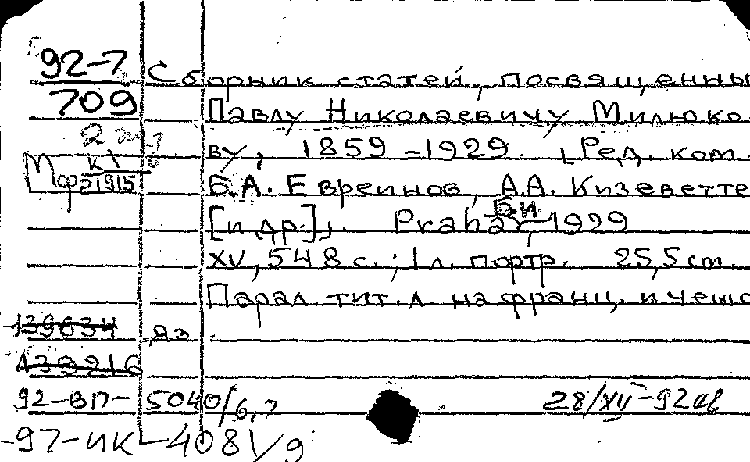 92-7 Сборник статей, посвященны
709 Павлу Николаевичу Милюко-
ву, 1859-1929. [Ред. ком.
К1
21915
Б.А. Евреинов, А.А. Кизеветте
[и др.]. Praha, 1929
XV, 548 с.; 1 л. портр. 25,5 cm.
Парал. тит. л. на франц. и чешс
139634 яз.
139916
92-ВП- 5040/6,7 28/XII-92
-97-ИК-4081/9